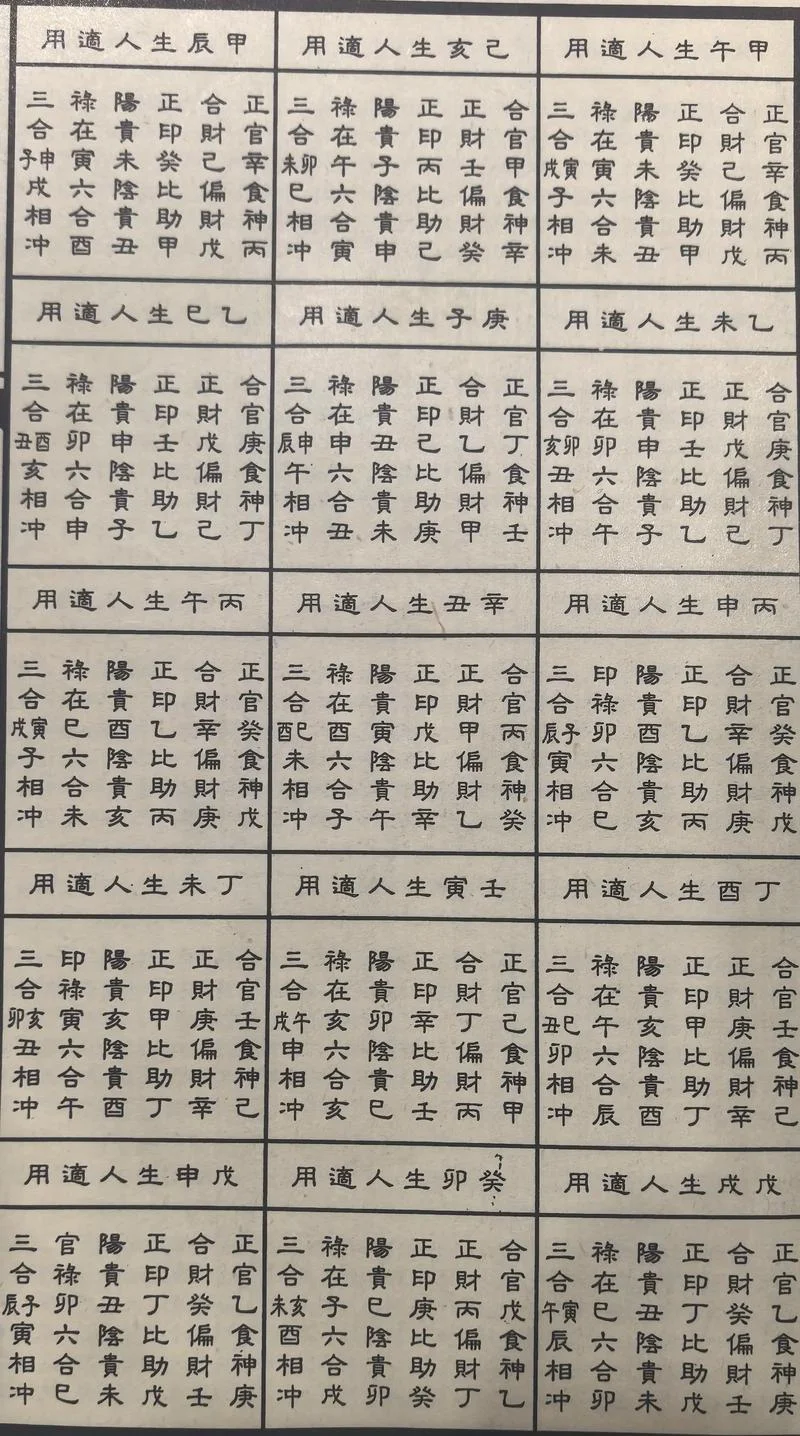 甲午生人適用
正官辛食神丙
合財己偏財戊
正印癸比助甲
陽貴未陰貴丑
祿在寅六合未
三合寅戌子相冲
乙未生人適用
合官庚食神丁
正財戊偏財己
正印壬比助乙
陽貴申陰貴子
祿在卯六合午
三合卯亥丑相冲
丙申生人適用
正官癸食神戊
合財辛偏財庚
正印乙比助丙
陽貴酉陰貴亥
印祿卯六合巳
三合子辰寅相冲
丁酉生人適用
合官壬食神己
正財庚偏財辛
正印甲比助丁
陽貴亥陰貴酉
祿在午六合辰
三合巳丑卯相冲
戊戌生人適用
正官乙食神庚
合財癸偏財壬
正印丁比助戊
陽貴丑陰貴未
祿在巳六合卯
三合寅午辰相冲
己亥生人適用
合官甲食神辛
正財壬偏財癸
正印丙比助己
陽貴子陰貴申
祿在午六合寅
三合卯未巳相冲
庚子生人適用
正官丁食神壬
合財乙偏財甲
正印己比助庚
陽貴丑陰貴未
祿在申六合丑
三合申辰午相冲
辛丑生人適用
合官丙食神癸
正財甲偏財乙
正印戊比助辛
陽貴寅陰貴午
祿在酉六合子
三合巳酉未相冲
壬寅生人適用
正官己食神甲
合財丁偏財丙
正印辛比助壬
陽貴卯陰貴巳
祿在亥六合亥
三合午戌申相冲
癸卯生人適用
合官戊食神乙
正財丙偏財丁
正印庚比助癸
陽貴巳陰貴卯
祿在子六合戌
三合亥未酉相冲
甲辰生人適用
正官辛食神丙
合財己偏財戊
正印癸比助甲
陽貴未陰貴丑
祿在寅六合酉
三合申子戌相冲
乙巳生人適用
合官庚食神丁
正財戊偏財己
正印壬比助乙
陽貴申陰貴子
祿在卯六合申
三合酉丑亥相冲
丙午生人適用
正官癸食神戊
合財辛偏財庚
正印乙比助丙
陽貴酉陰貴亥
祿在巳六合未
三合寅戌子相冲
丁未生人適用
合官壬食神己
正財庚偏財辛
正印甲比助丁
陽貴亥陰貴酉
印祿寅六合午
三合亥卯丑相冲
戊申生人適用
正官乙食神庚
合財癸偏財壬
正印丁比助戊
陽貴丑陰貴未
官祿卯六合巳
三合子辰寅相冲